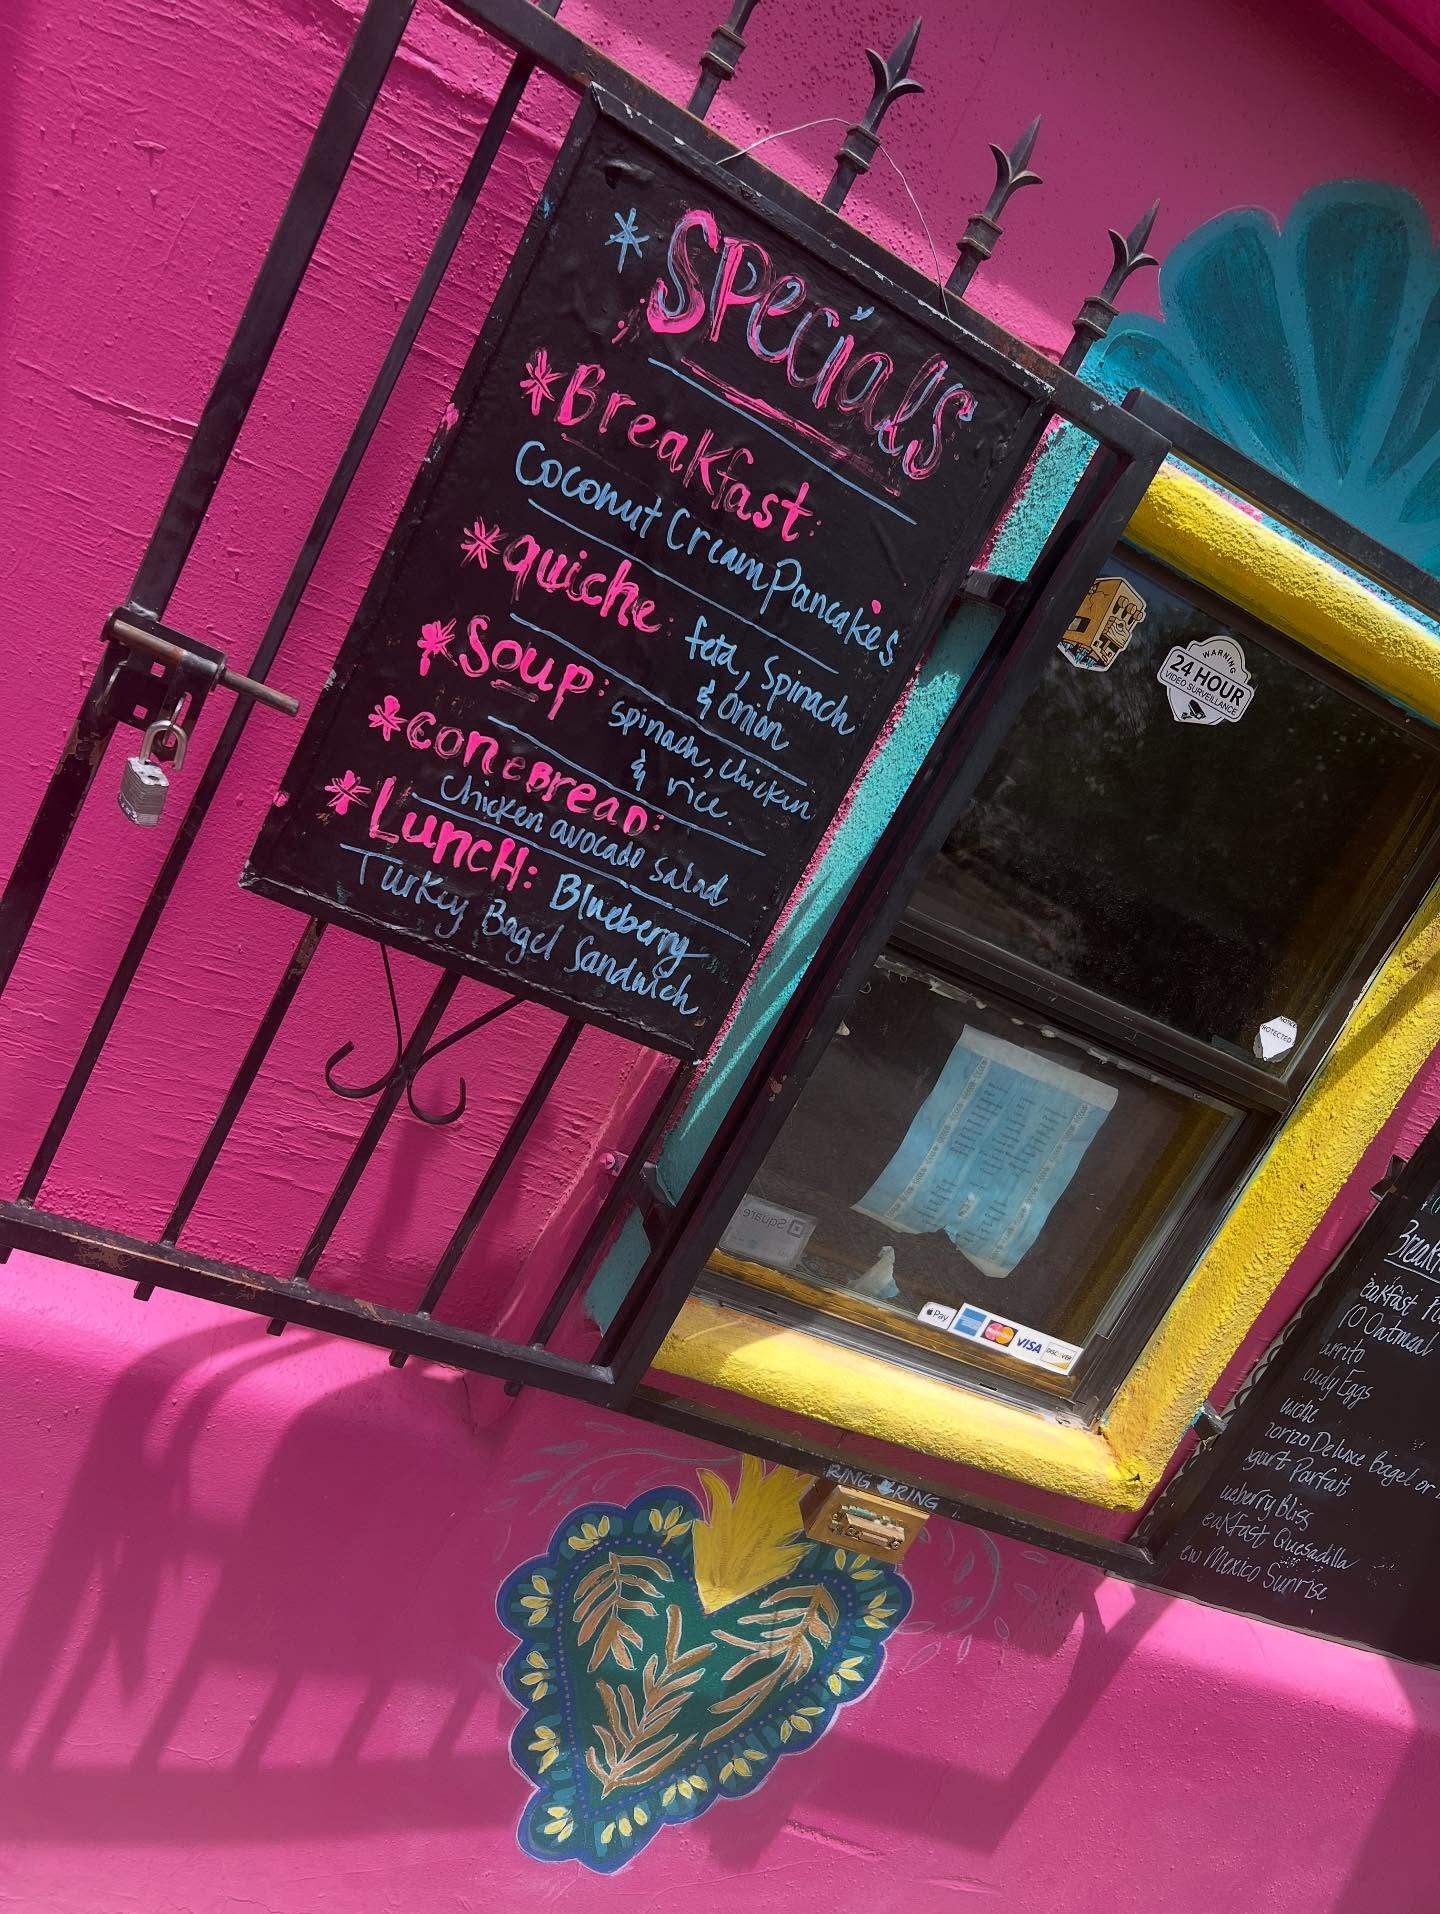 * Specials
* Breakfast:
Coconut Cream Pancakes
* quiche: feta, Spinach
& onion
* Soup: spinach, chicken
& rice.
* ConeBREAD:
Chicken avocado Salad
* LuncH: Blueberry
Turkey Bagel Sandwich
WARNING
24 HOUR
VIDEO SURVEILLANCE
NOTICE
ROTECTED
Square
Pay
VISA
DISCOVER
RING RING
Break
eakfast
Oatmeal
urrito
oudy Eggs
uiche
horizo Deluxe Bagel or
ogurt Parfait
ueberry Bliss
eakfast Quesadilla
ew Mexico Sunrise